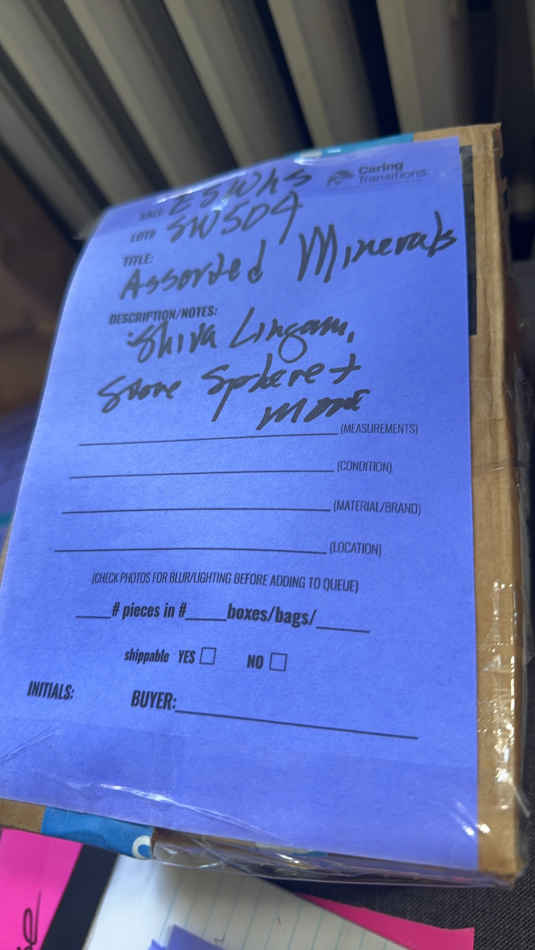 Caring
Transitions
SALE: ESWhs
LOT# SW504
TITLE:
Assorted Minerals
DESCRIPTION/NOTES:
Shiva Lingam,
Stone Sphere +
more
(MEASUREMENTS)
(CONDITION)
(MATERIAL/BRAND)
(LOCATION)
(CHECK PHOTOS FOR BLUR/LIGHTING BEFORE ADDING TO QUEUE)
____# pieces in #_____boxes/bags/______
shippable YES ☐ NO ☐
INITIALS: BUYER: